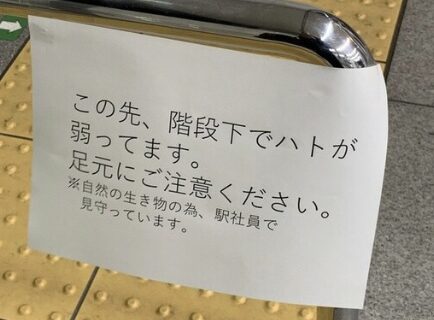 この先、階段下でハトが
弱ってます。
足元にご注意ください。
※自然の生き物の為、駅社員で
見守っています。